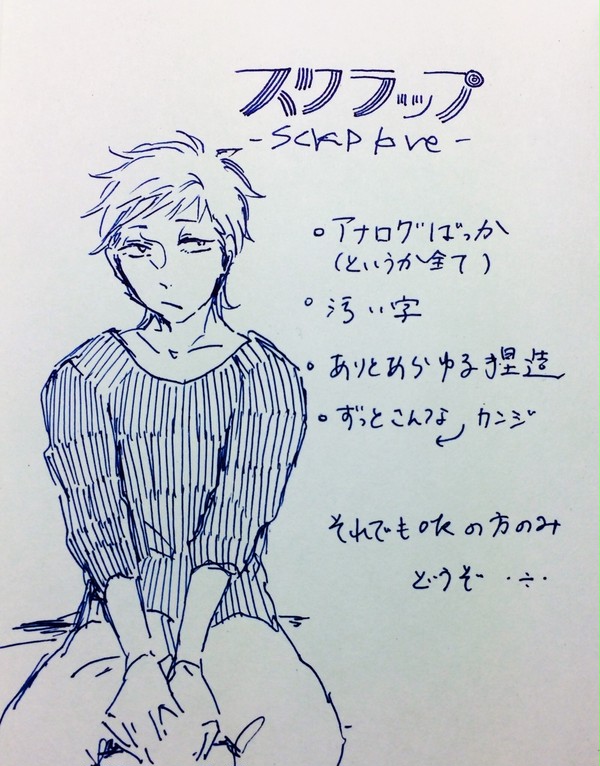 スクラップ
-Scrap love-
・アナログばっか
(というか全て)
・汚い字
・ありとあらゆる捏造
・ずっとこんな カンジ
それでもokの方のみ
どうぞ ・÷・